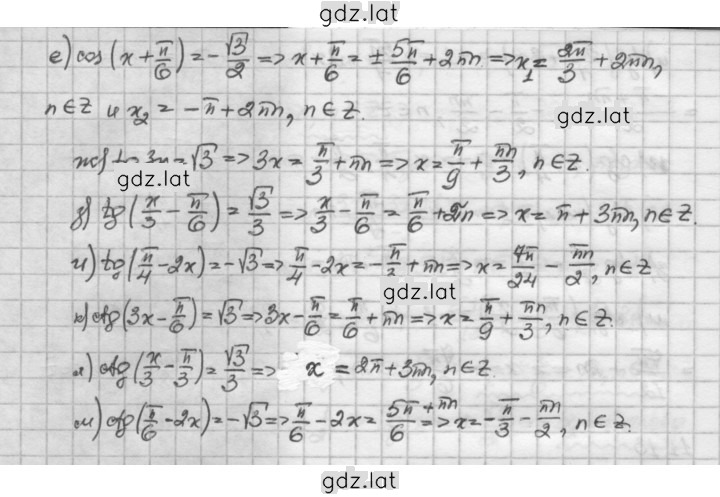 gdz.lat
е) cos(x + π/6) = -√3/2 => x + π/6 = ± 5π/6 + 2πn => x₁ = 2π/3 + 2πn,
n ∈ Z и x₂ = -π + 2πn, n ∈ Z.
gdz.lat
ж) 3x = √3 => 3x = π/3 + πn => x = π/9 + πn/3, n ∈ Z.
gdz.lat
з) tg(x/3 - π/6) = √3/3 => x/3 - π/6 = π/6 + πn => x = π + 3πn, n ∈ Z.
и) tg(π/4 - 2x) = -√3 => π/4 - 2x = -π/3 + πn => x = 7π/24 - πn/2, n ∈ Z
gdz.lat
к) ctg(3x - π/6) = √3 => 3x - π/6 = π/6 + πn => x = π/9 + πn/3, n ∈ Z.
л) ctg(x/3 - π/3) = √3/3 => x = 2π + 3πn, n ∈ Z.
м) ctg(π/6 - 2x) = -√3 => π/6 - 2x = 5π/6 + πn => x = -π/3 - πn/2, n ∈ Z.
gdz.lat